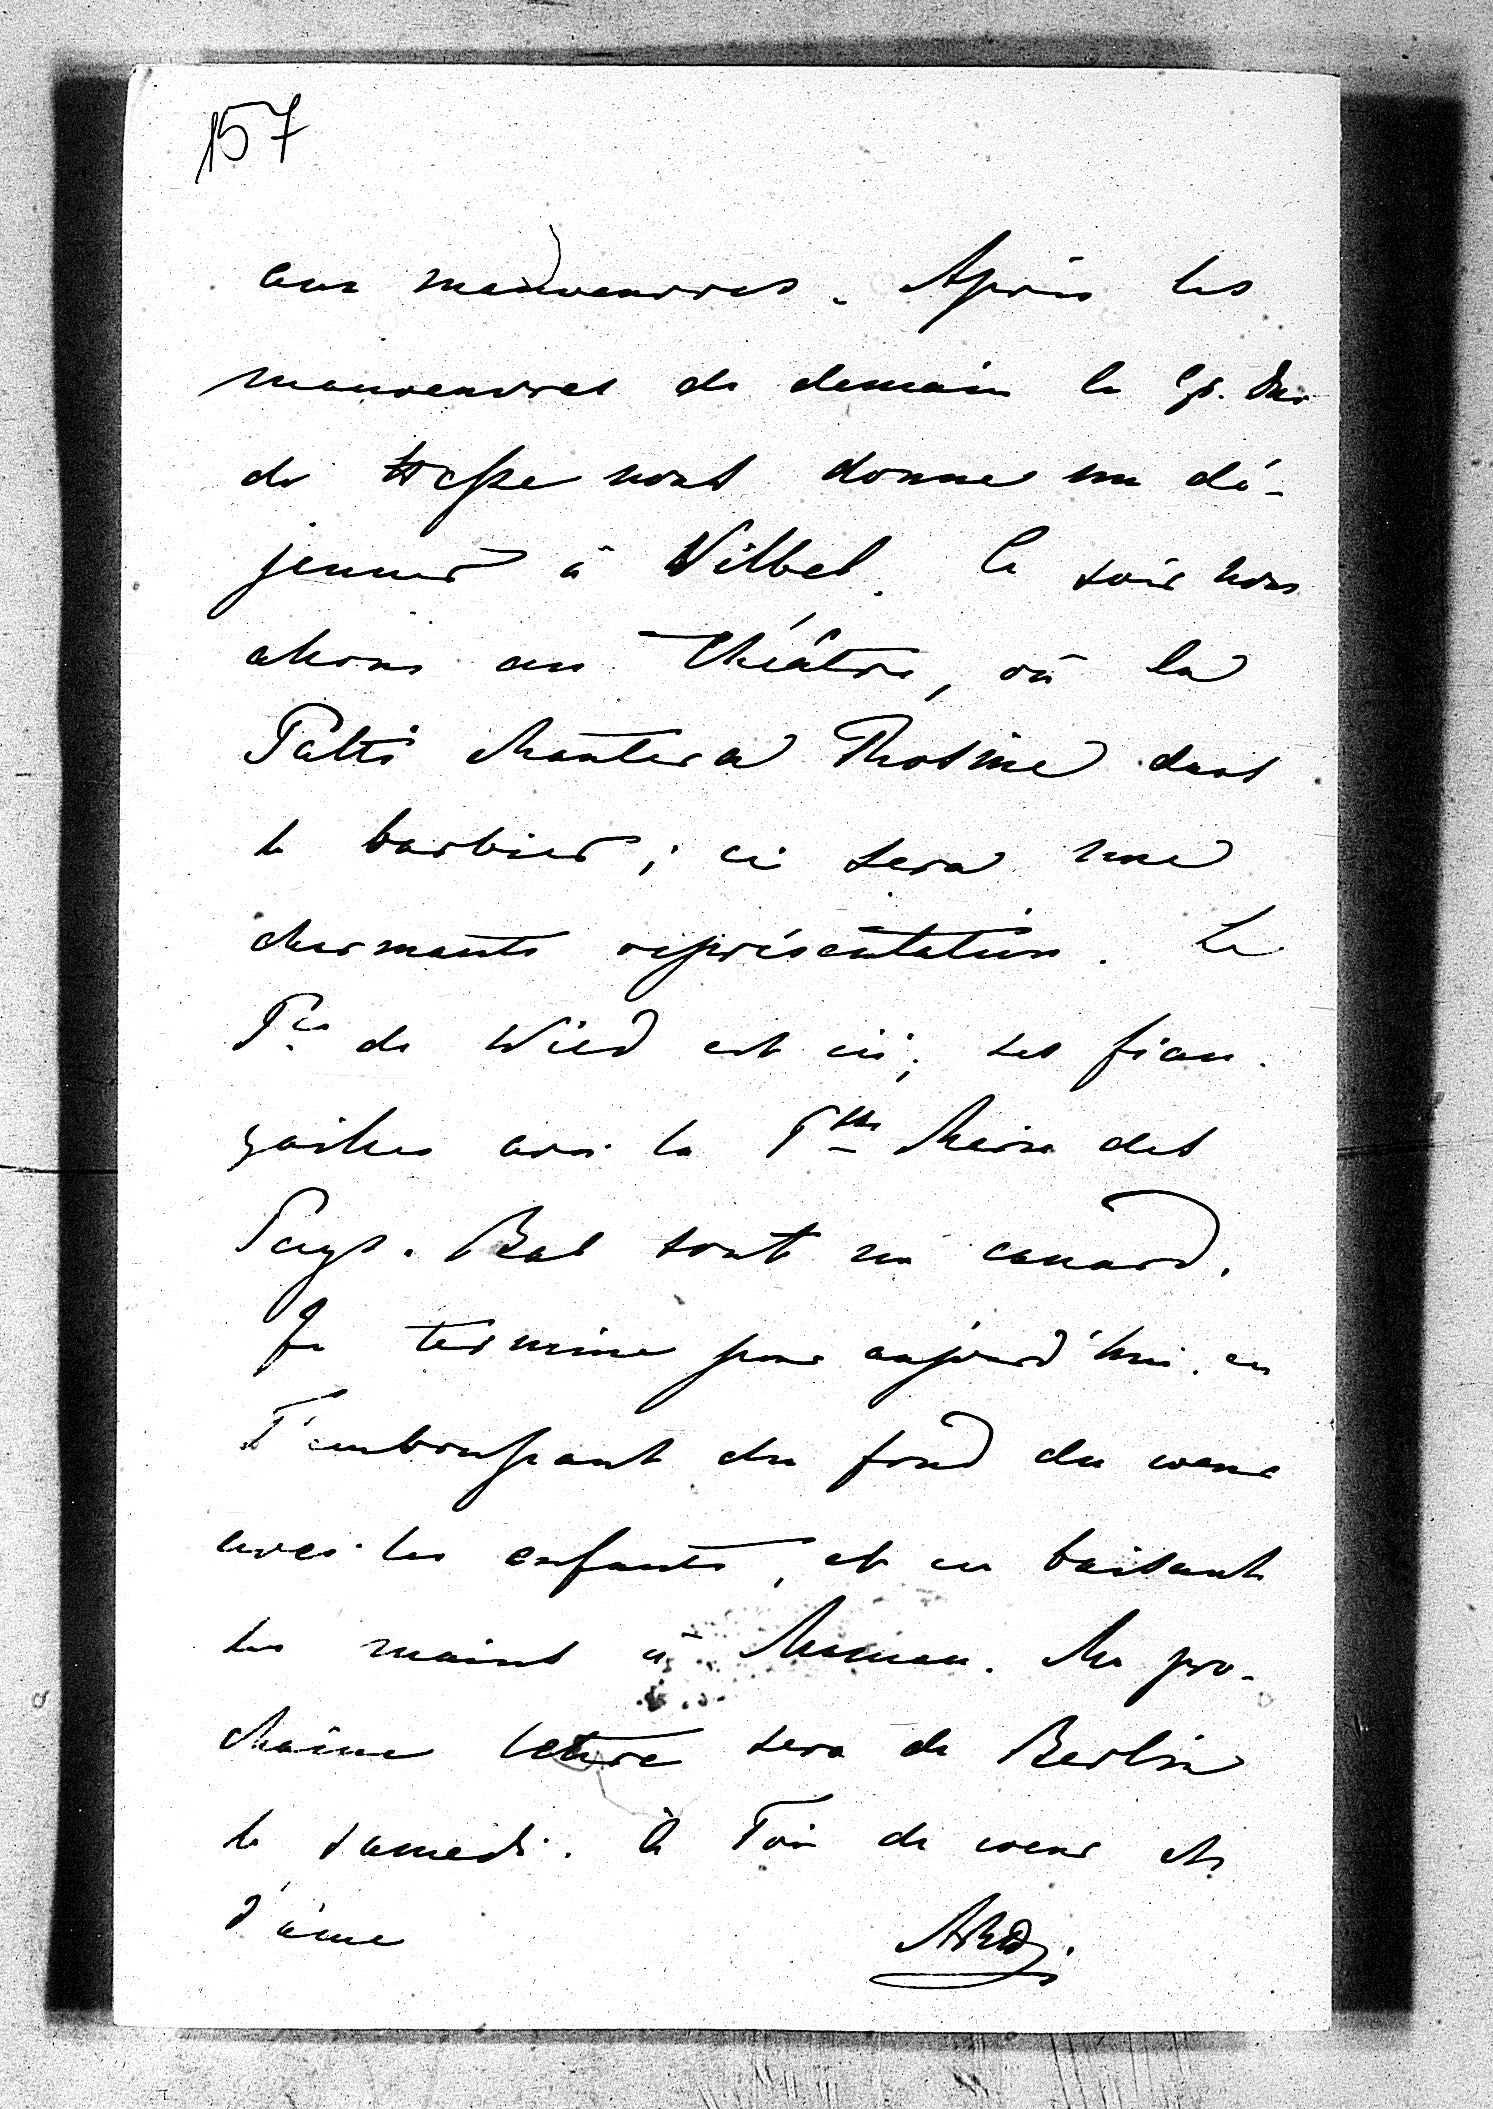 157
aux manoeuvres. Après les
manoeuvres de demain le gr. Duc
de Hesse nous donne un dé-
jeuner à Vilbel. Le soir nous
allons au Théâtre, où la
Patti chantera Rhosine dans
le barbier; ce sera une
charmante représentation. Le
Pce de Wied est ici; ses fian-
çailles avec la Psse Marie des
Pays-Bas sont un canard.
Je termine pour aujourd'hui en
T'embrassant du fond du coeur
avec les enfants, et en baisant
les mains à Maman. Ma pro-
chaine lettre sera de Berlin
le samedi. à Toi de coeur et
d'âme